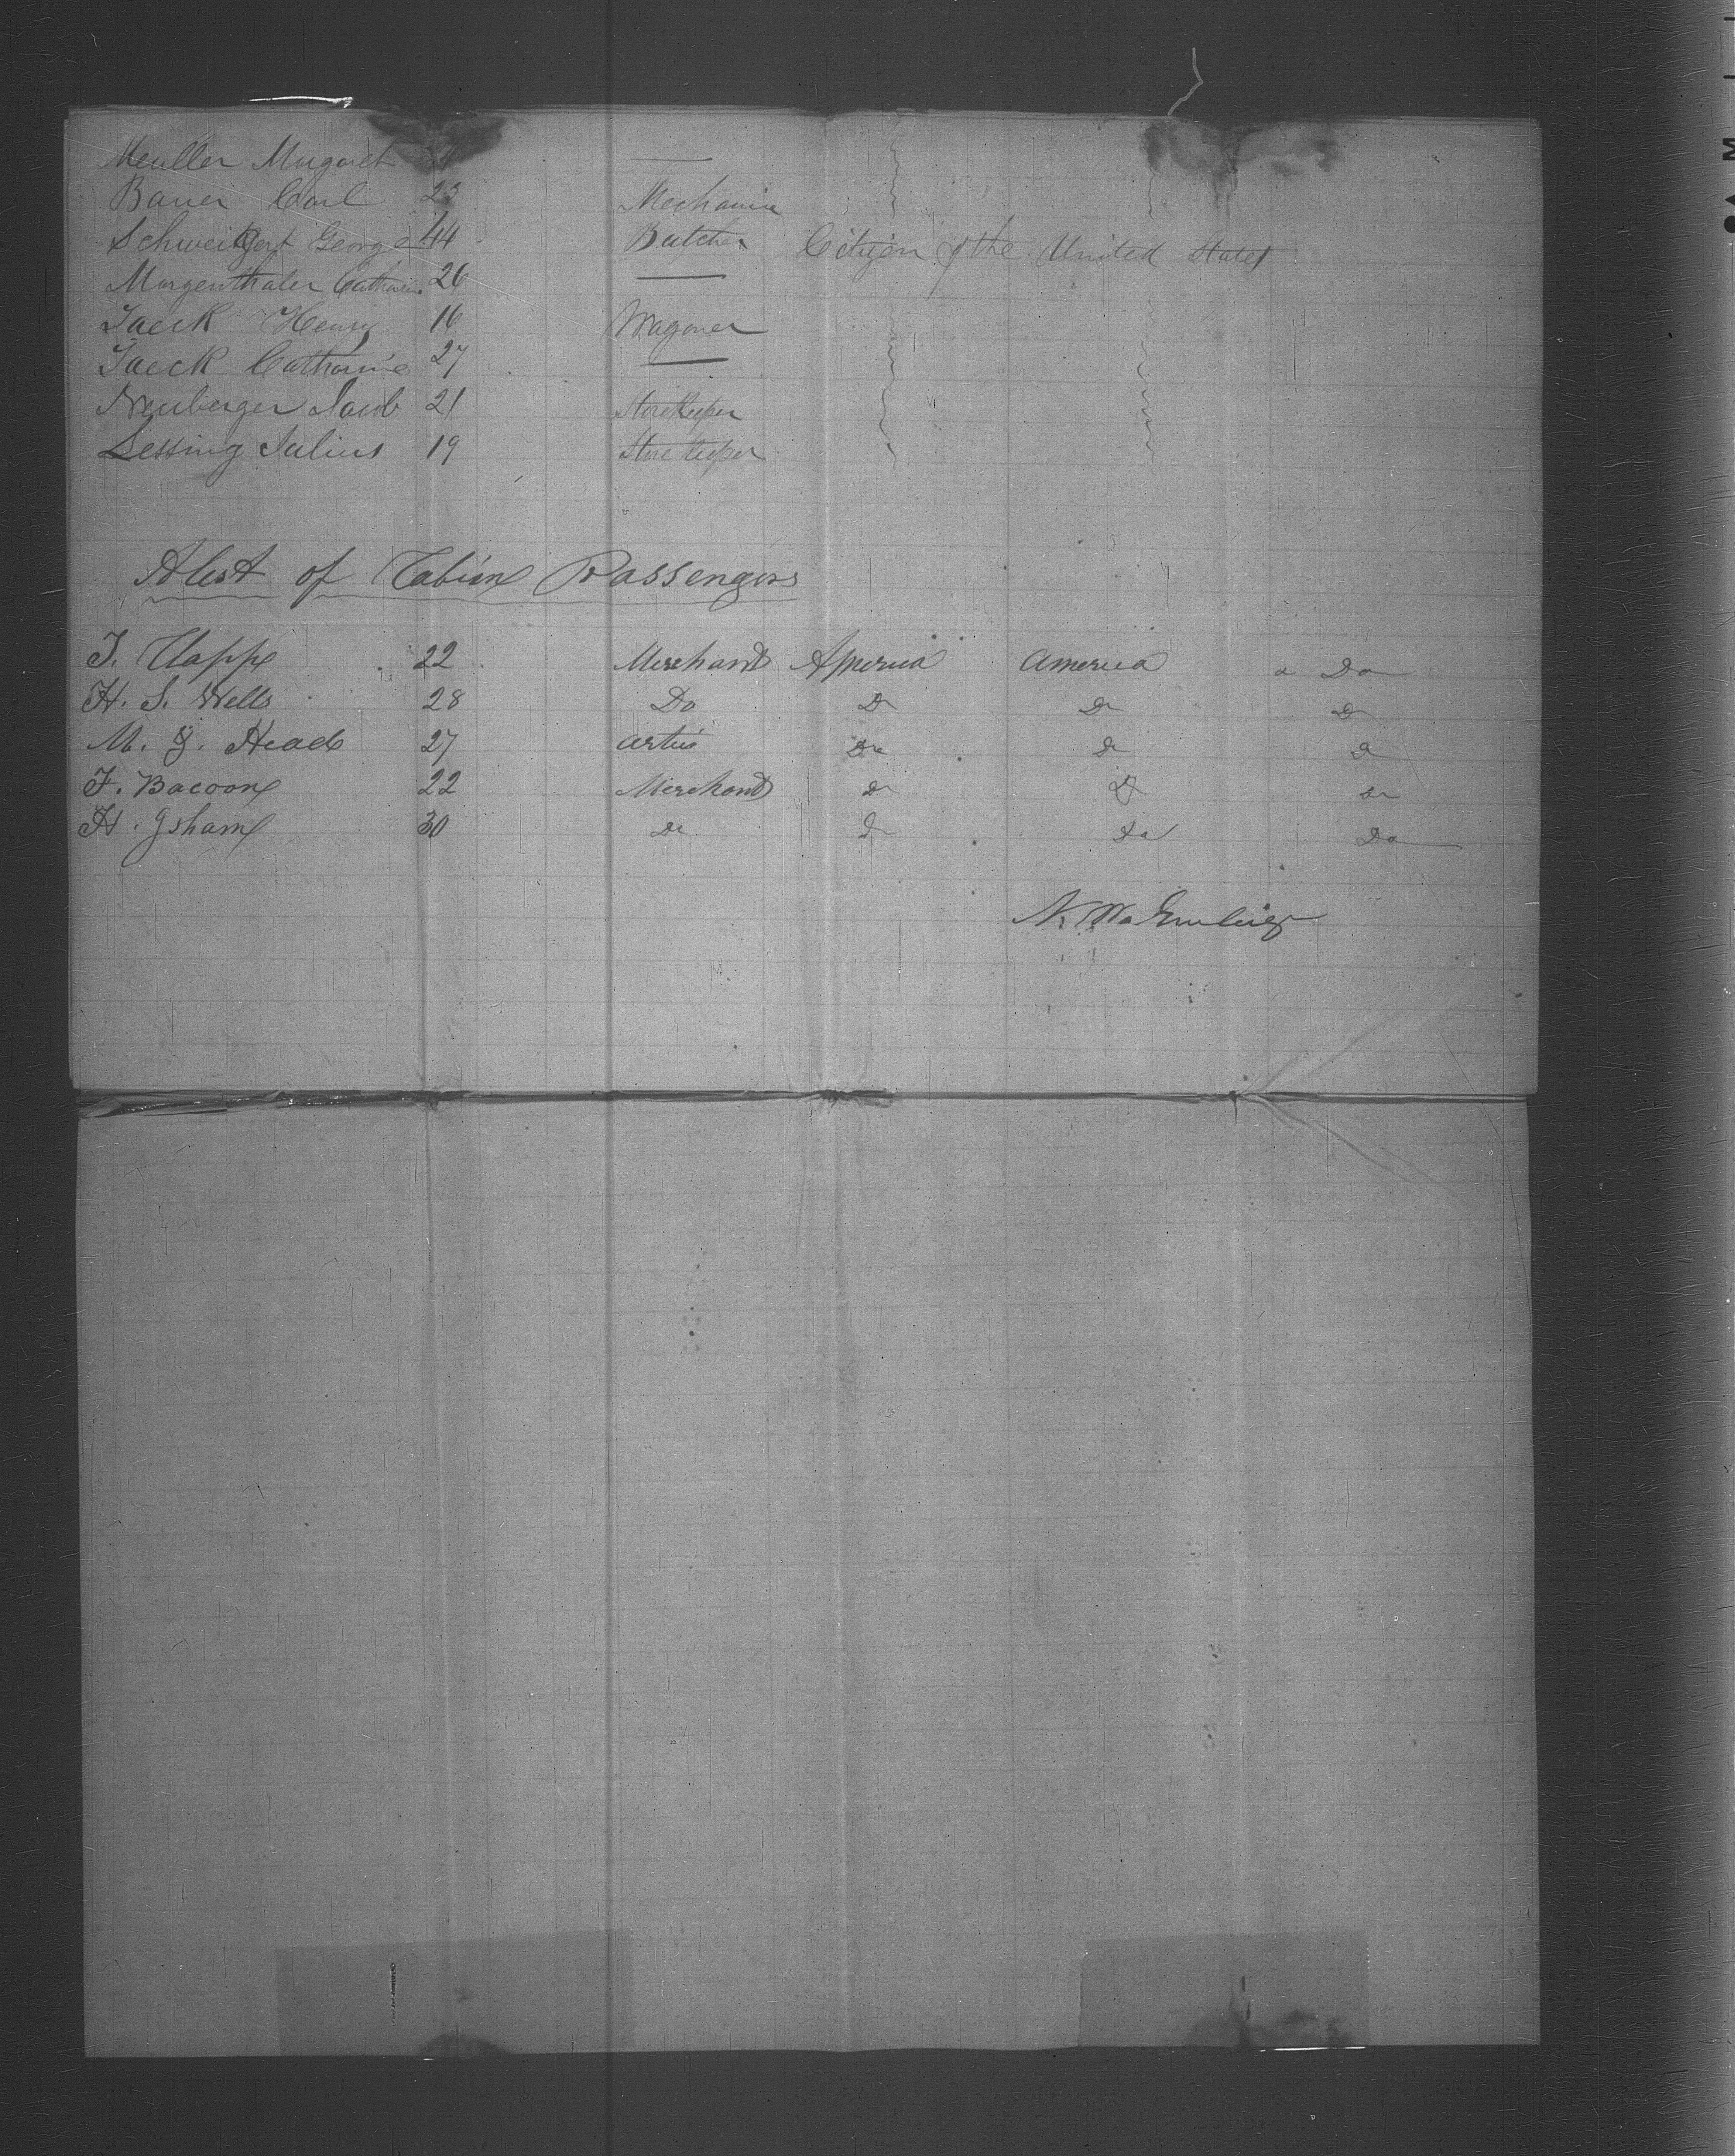 Meuller Magaret
Bauer Carl 23 Mechanic
Schweikert George 44 Butcher Citizen of the United States
Morgenthaler Catharine 26 —
Jaeck Henry 16 Wagoner
Jaeck Catharine 27 —
Neuberger Jacob 21 Storekeeper
Lessing Julius 19 Storekeeper
A List of Cabin Passengers
J. Clapp 22 Merchant America America Do
H. S. Wells 28 Do Do Do Do
M. J. Heade 27 Artis Do Do Do
F. Bacoon 22 Merchant Do Do Do
H. Isham 30 Do Do Do Do